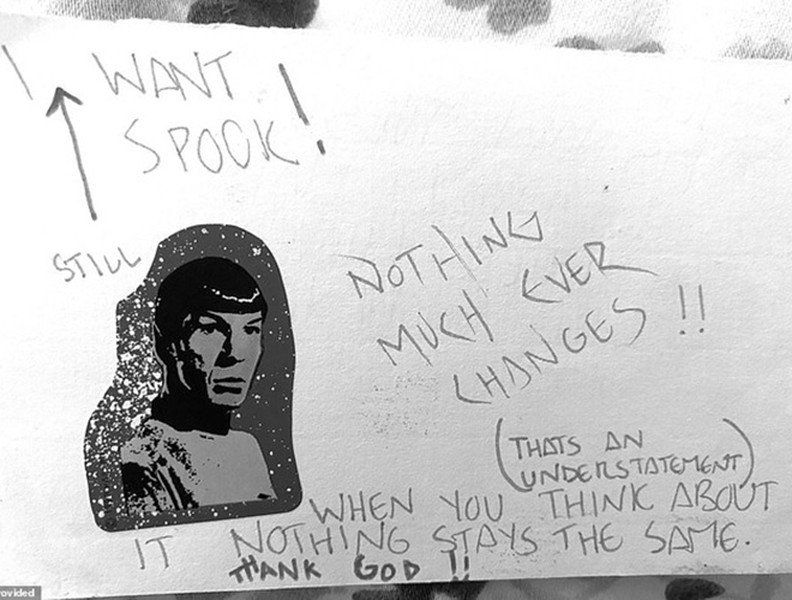 I WANT
SPOCK!
STILL
NOTHING
MUCH EVER
CHANGES !!
(THATS AN
UNDERSTATEMENT)
WHEN YOU THINK ABOUT
IT NOTHING STAYS THE SAME.
THANK GOD !!
rovided